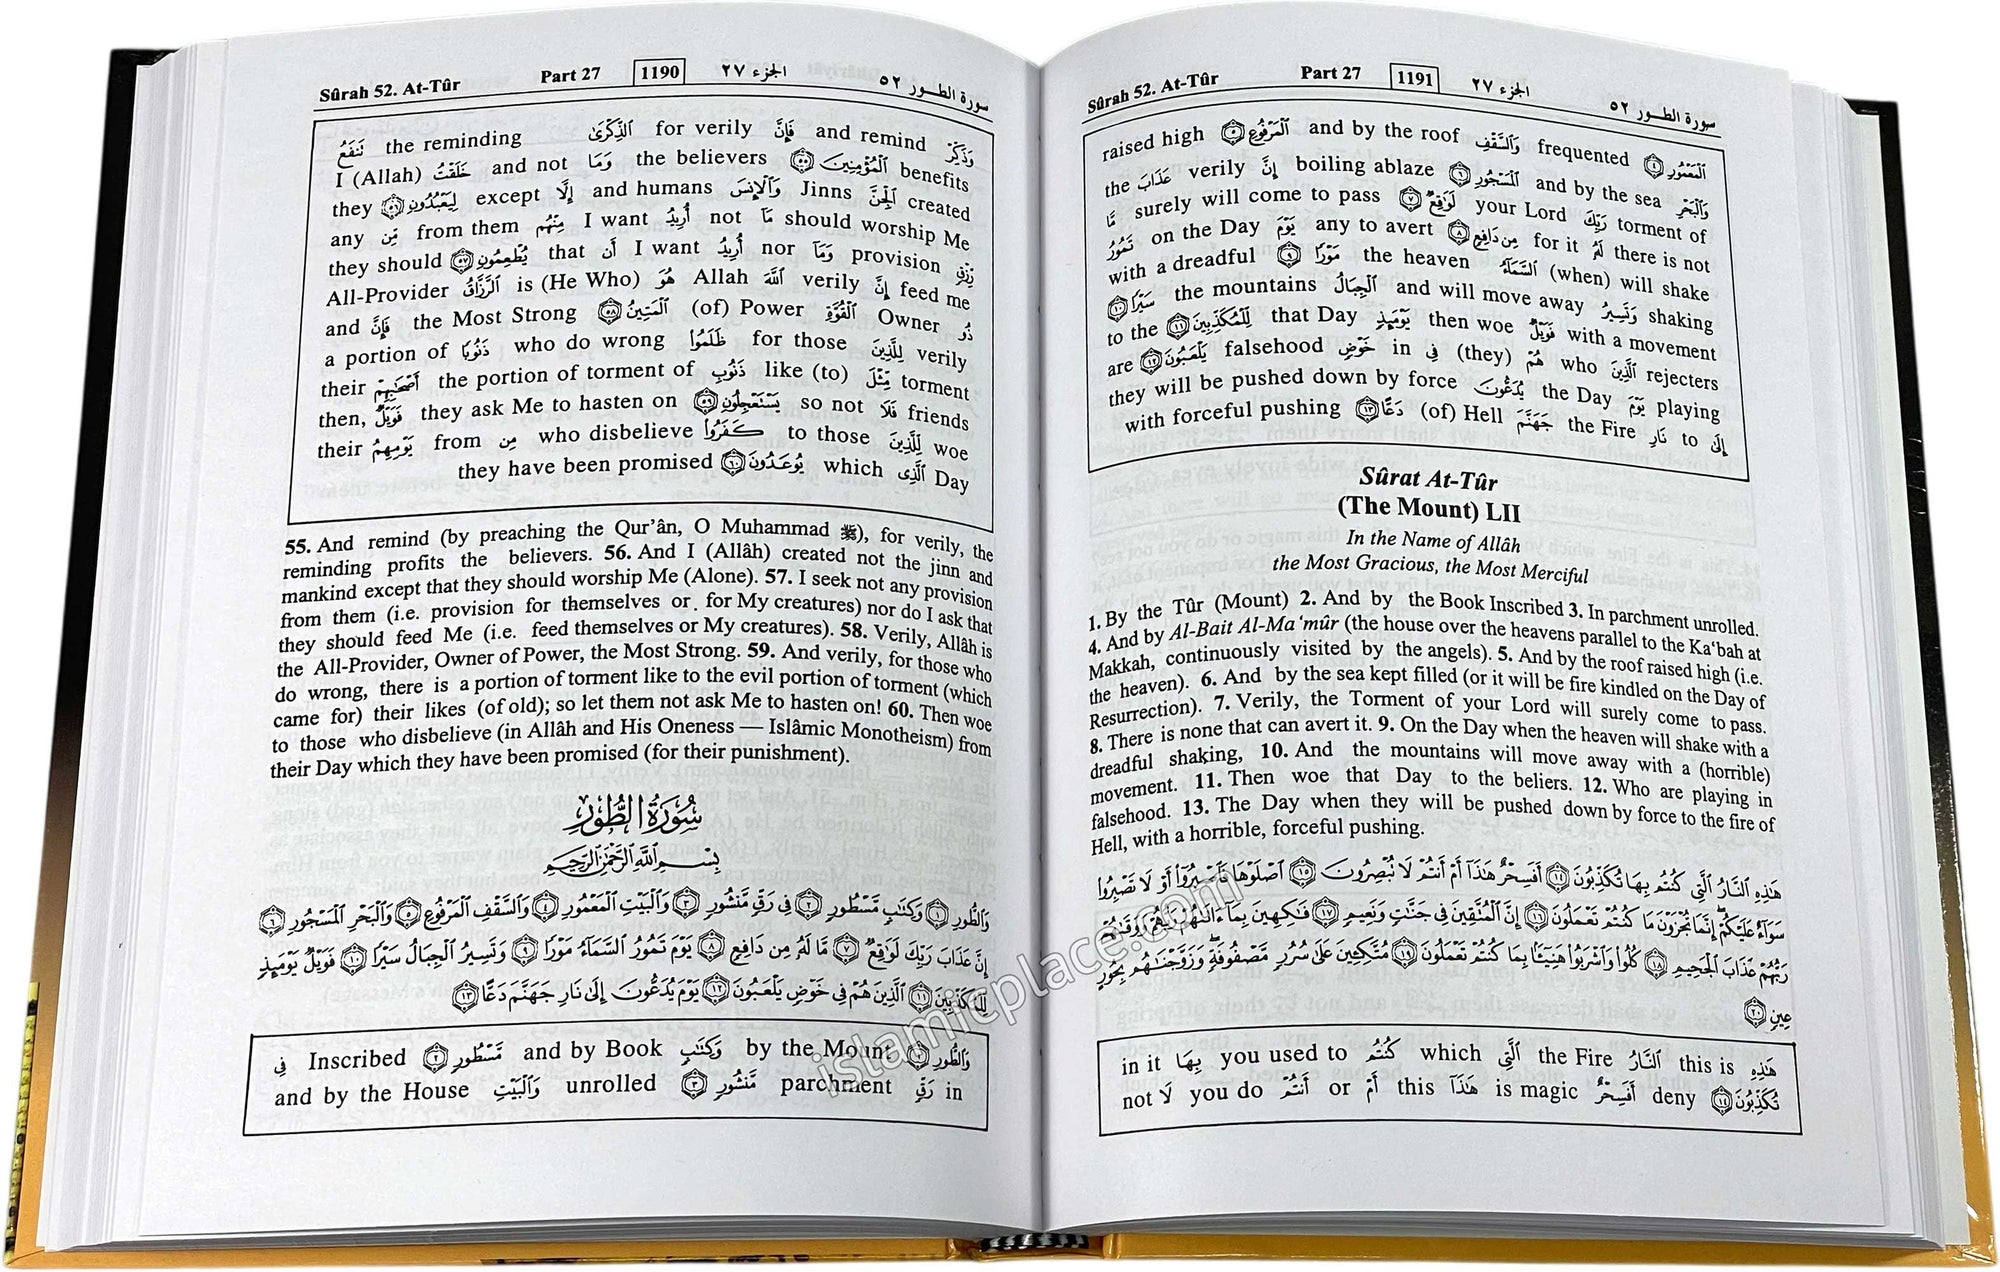 Sûrah 52. At-Tûr Part 27 1190 الجزء ٢٧ سورة الطور ٥٢
وَذَكِّرْ and remind فَإِنَّ for verily الذِّكْرَىٰ the reminding تَنفَعُ
benefits الْمُؤْمِنِينَ ٥٥ the believers وَمَا and not خَلَقْتُ I (Allah)
created الْجِنَّ Jinns وَالْإِنسَ and humans إِلَّا except لِيَعْبُدُونِ ٥٦ they
should worship Me مَا not أُرِيدُ I want مِنْهُم from them مِّن any
رِّزْقٍ provision وَمَا nor أُرِيدُ I want أَن that يُطْعِمُونِ ٥٧ they should
feed me إِنَّ verily اللَّهَ Allah هُوَ is (He Who) الرَّزَّاقُ All-Provider
ذُو Owner الْقُوَّةِ (of) Power الْمَتِينُ ٥٨ the Most Strong فَإِنَّ and
verily لِلَّذِينَ for those ظَلَمُوا who do wrong ذَنُوبًا a portion of
torment مِّثْلَ like (to) ذَنُوبِ the portion of torment of أَصْحَابِهِمْ their
friends فَلَا so not يَسْتَعْجِلُونِ ٥٩ they ask Me to hasten on فَوَيْلٌ then,
woe لِّلَّذِينَ to those كَفَرُوا who disbelieve مِن from يَوْمِهِمُ their
Day الَّذِي which يُوعَدُونَ ٦٠ they have been promised
55. And remind (by preaching the Qur’ân, O Muhammad ﷺ), for verily, the
reminding profits the believers. 56. And I (Allâh) created not the jinn and
mankind except that they should worship Me (Alone). 57. I seek not any provision
from them (i.e. provision for themselves or. for My creatures) nor do I ask that
they should feed Me (i.e. feed themselves or My creatures). 58. Verily, Allâh is
the All-Provider, Owner of Power, the Most Strong. 59. And verily, for those who
do wrong, there is a portion of torment like to the evil portion of torment (which
came for) their likes (of old); so let them not ask Me to hasten on! 60. Then woe
to those who disbelieve (in Allâh and His Oneness — Islâmic Monotheism) from
their Day which they have been promised (for their punishment).
سُورَةُ الطُّورِ
بِسْمِ اللَّهِ الرَّحْمَٰنِ الرَّحِيمِ
وَالطُّورِ ١ وَكِتَابٍ مَّسْطُورٍ ٢ فِي رَقٍّ مَّنشُورٍ ٣ وَالْبَيْتِ الْمَعْمُورِ ٤ وَالسَّقْفِ الْمَرْفُوعِ ٥ وَالْبَحْرِ الْمَسْجُورِ ٦
إِنَّ عَذَابَ رَبِّكَ لَوَاقِعٌ ٧ مَّا لَهُ مِن دَافِعٍ ٨ يَوْمَ تَمُورُ السَّمَاءُ مَوْرًا ٩ وَتَسِيرُ الْجِبَالُ سَيْرًا ١٠ فَوَيْلٌ يَوْمَئِذٍ
لِّلْمُكَذِّبِينَ ١١ الَّذِينَ هُمْ فِي خَوْضٍ يَلْعَبُونَ ١٢ يَوْمَ يُدَعُّونَ إِلَىٰ نَارِ جَهَنَّمَ دَعًّا ١٣
وَالطُّورِ ١ by the Mount وَكِتَابٍ and by Book مَّسْطُورٍ ٢ Inscribed فِي
in رَقٍّ parchment مَّنشُورٍ ٣ unrolled وَالْبَيْتِ and by the House
Sûrah 52. At-Tûr Part 27 1191 الجزء ٢٧ سورة الطور ٥٢
الْمَعْمُورِ ٤ frequented وَالسَّقْفِ and by the roof الْمَرْفُوعِ ٥ raised high
وَالْبَحْرِ and by the sea الْمَسْجُورِ ٦ boiling ablaze إِنَّ verily عَذَابَ the
torment of رَبِّكَ your Lord لَوَاقِعٌ ٧ surely will come to pass مَّا
there is not لَهُ for it مِن دَافِعٍ ٨ any to avert يَوْمَ on the Day تَمُورُ
(when) will shake السَّمَاءُ the heaven مَوْرًا ٩ with a dreadful
shaking وَتَسِيرُ and will move away الْجِبَالُ the mountains سَيْرًا ١٠
with a movement فَوَيْلٌ then woe يَوْمَئِذٍ that Day لِّلْمُكَذِّبِينَ ١١ to the
rejecters الَّذِينَ who هُمْ (they) فِي in خَوْضٍ falsehood يَلْعَبُونَ ١٢ are
playing يَوْمَ the Day يُدَعُّونَ they will be pushed down by force
إِلَىٰ to نَارِ the Fire جَهَنَّمَ (of) Hell دَعًّا ١٣ with forceful pushing
Sûrat At-Tûr
(The Mount) LII
In the Name of Allâh
the Most Gracious, the Most Merciful
1. By the Tûr (Mount) 2. And by the Book Inscribed 3. In parchment unrolled.
4. And by Al-Bait Al-Ma‘mûr (the house over the heavens parallel to the Ka‘bah at
Makkah, continuously visited by the angels). 5. And by the roof raised high (i.e.
the heaven). 6. And by the sea kept filled (or it will be fire kindled on the Day of
Resurrection). 7. Verily, the Torment of your Lord will surely come to pass.
8. There is none that can avert it. 9. On the Day when the heaven will shake with a
dreadful shaking, 10. And the mountains will move away with a (horrible)
movement. 11. Then woe that Day to the beliers. 12. Who are playing in
falsehood. 13. The Day when they will be pushed down by force to the fire of
Hell, with a horrible, forceful pushing.
هَٰذِهِ النَّارُ الَّتِي كُنتُم بِهَا تُكَذِّبُونَ ١٤ أَفَسِحْرٌ هَٰذَا أَمْ أَنتُمْ لَا تُبْصِرُونَ ١٥ اصْلَوْهَا فَاصْبِرُوا أَوْ لَا تَصْبِرُوا
سَوَاءٌ عَلَيْكُمْ إِنَّمَا تُجْزَوْنَ مَا كُنتُمْ تَعْمَلُونَ ١٦ إِنَّ الْمُتَّقِينَ فِي جَنَّاتٍ وَنَعِيمٍ ١٧ فَاكِهِينَ بِمَا آتَاهُمْ رَبُّهُمْ وَوَقَاهُمْ
رَبُّهُمْ عَذَابَ الْجَحِيمِ ١٨ كُلُوا وَاشْرَبُوا هَنِيئًا بِمَا كُنتُمْ تَعْمَلُونَ ١٩ مُتَّكِئِينَ عَلَىٰ سُرُرٍ مَّصْفُوفَةٍ وَزَوَّجْنَاهُم بِحُورٍ
عِينٍ ٢٠
هَٰذِهِ this is النَّارُ the Fire الَّتِي which كُنتُم you used to بِهَا in it
تُكَذِّبُونَ ١٤ deny أَفَسِحْرٌ is magic هَٰذَا this أَمْ or أَنتُمْ you do لَا not
islamicplace.com